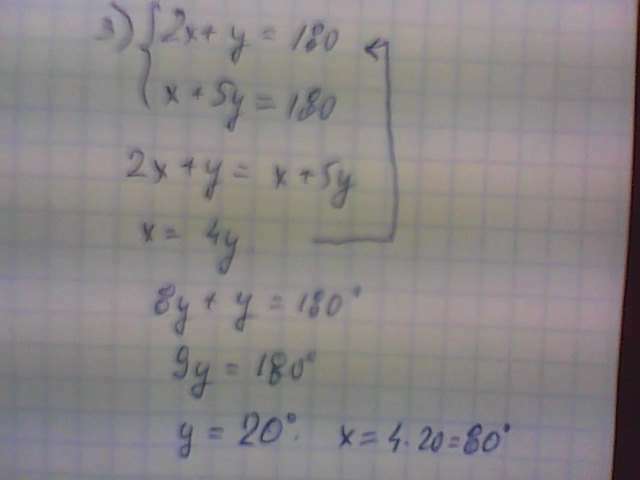 3) { 2x + y = 180
x + 5y = 180
2x + y = x + 5y
x = 4y
8y + y = 180°
9y = 180°
y = 20°. x = 4 · 20 = 80°